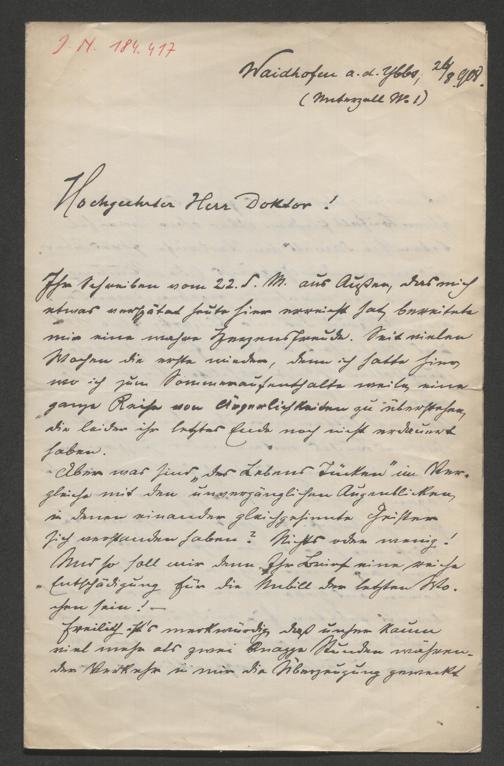 J. N. 184.417
Waidhofen a. d. Ybbs, 24/8 908.
(Unterzell No 1)
Hochgeehrter Herr Doktor!
Ihr Schreiben vom 22. d. M. aus Aussee, das mich
etwas verspätet heute hier erreicht hat, bereitete
mir eine wahre Herzensfreude. Seit vielen
Wochen die erste wieder, denn ich hatte hier,
wo ich zum Sommeraufenthalte weile, eine
ganze Reihe von Ärgerlichkeiten zu überstehen,
die leider ihr letztes Ende noch nicht erdauert
haben.
Aber was sind „des Lebens Tücken" im Ver-
gleiche mit den unvergänglichen Augenblicken,
in denen einander gleichgesinnte Geister
sich verstanden haben? Nichts oder wenig!
Und so soll mir denn Ihr Brief eine reiche
Entschädigung für die Unbill der letzten Wo-
chen sein! —
Freilich ist's merkwürdig, daß unser kaum
viel mehr als zwei knappe Stunden währen-
der Verkehr in mir die Überzeugung geweckt